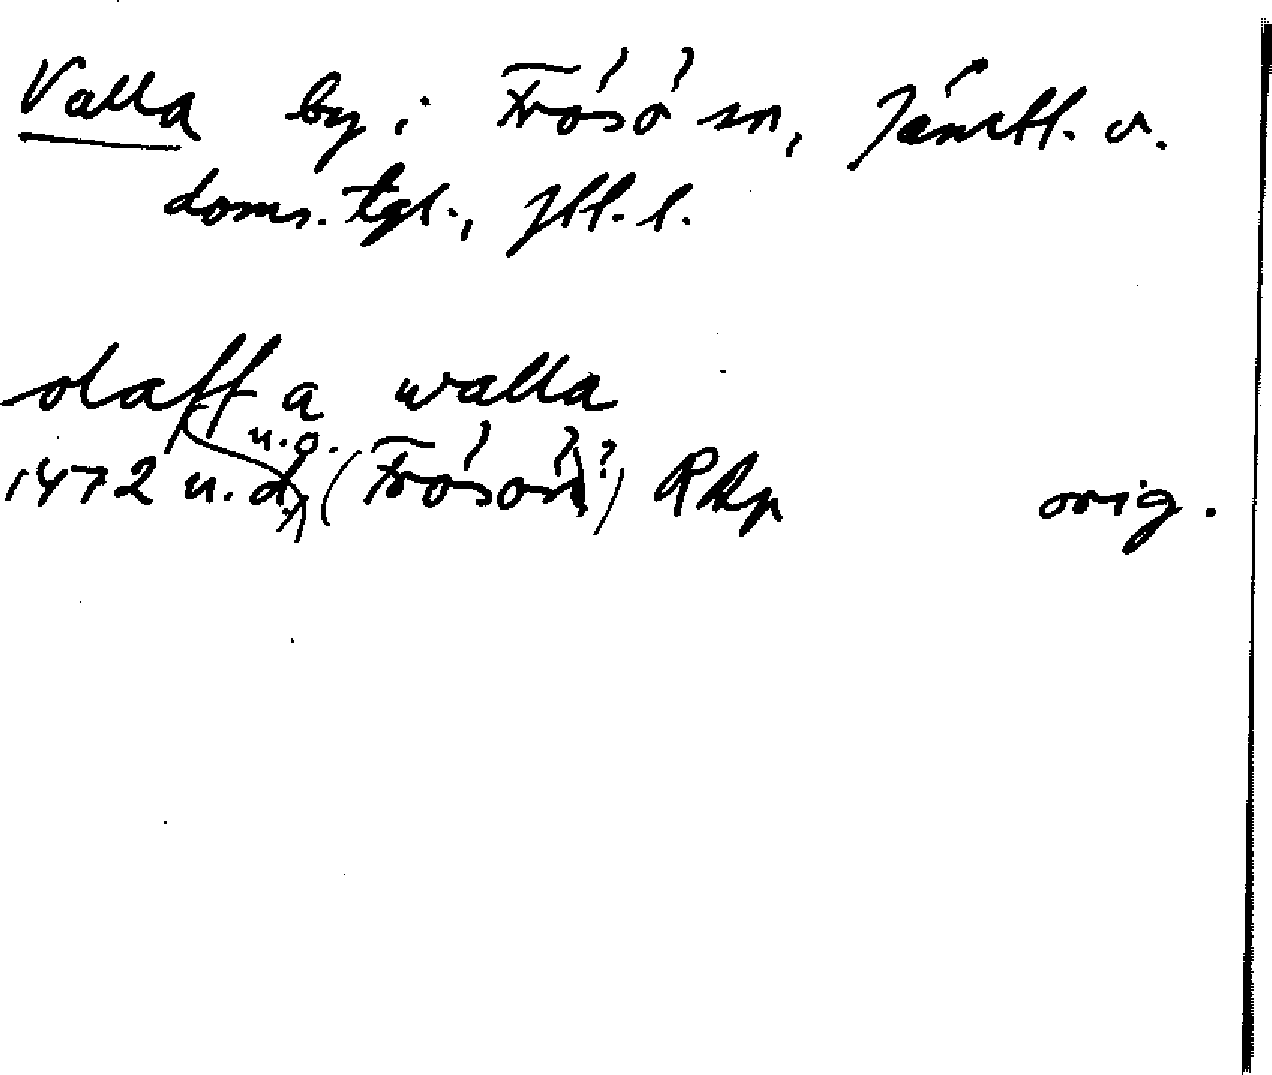 Valla by i Frösö sn, Jämtl. v.
doms. tgl., Jtl. l.
olaff a walla
u.o.
1472 u.d. (Frösön?) RAp orig.